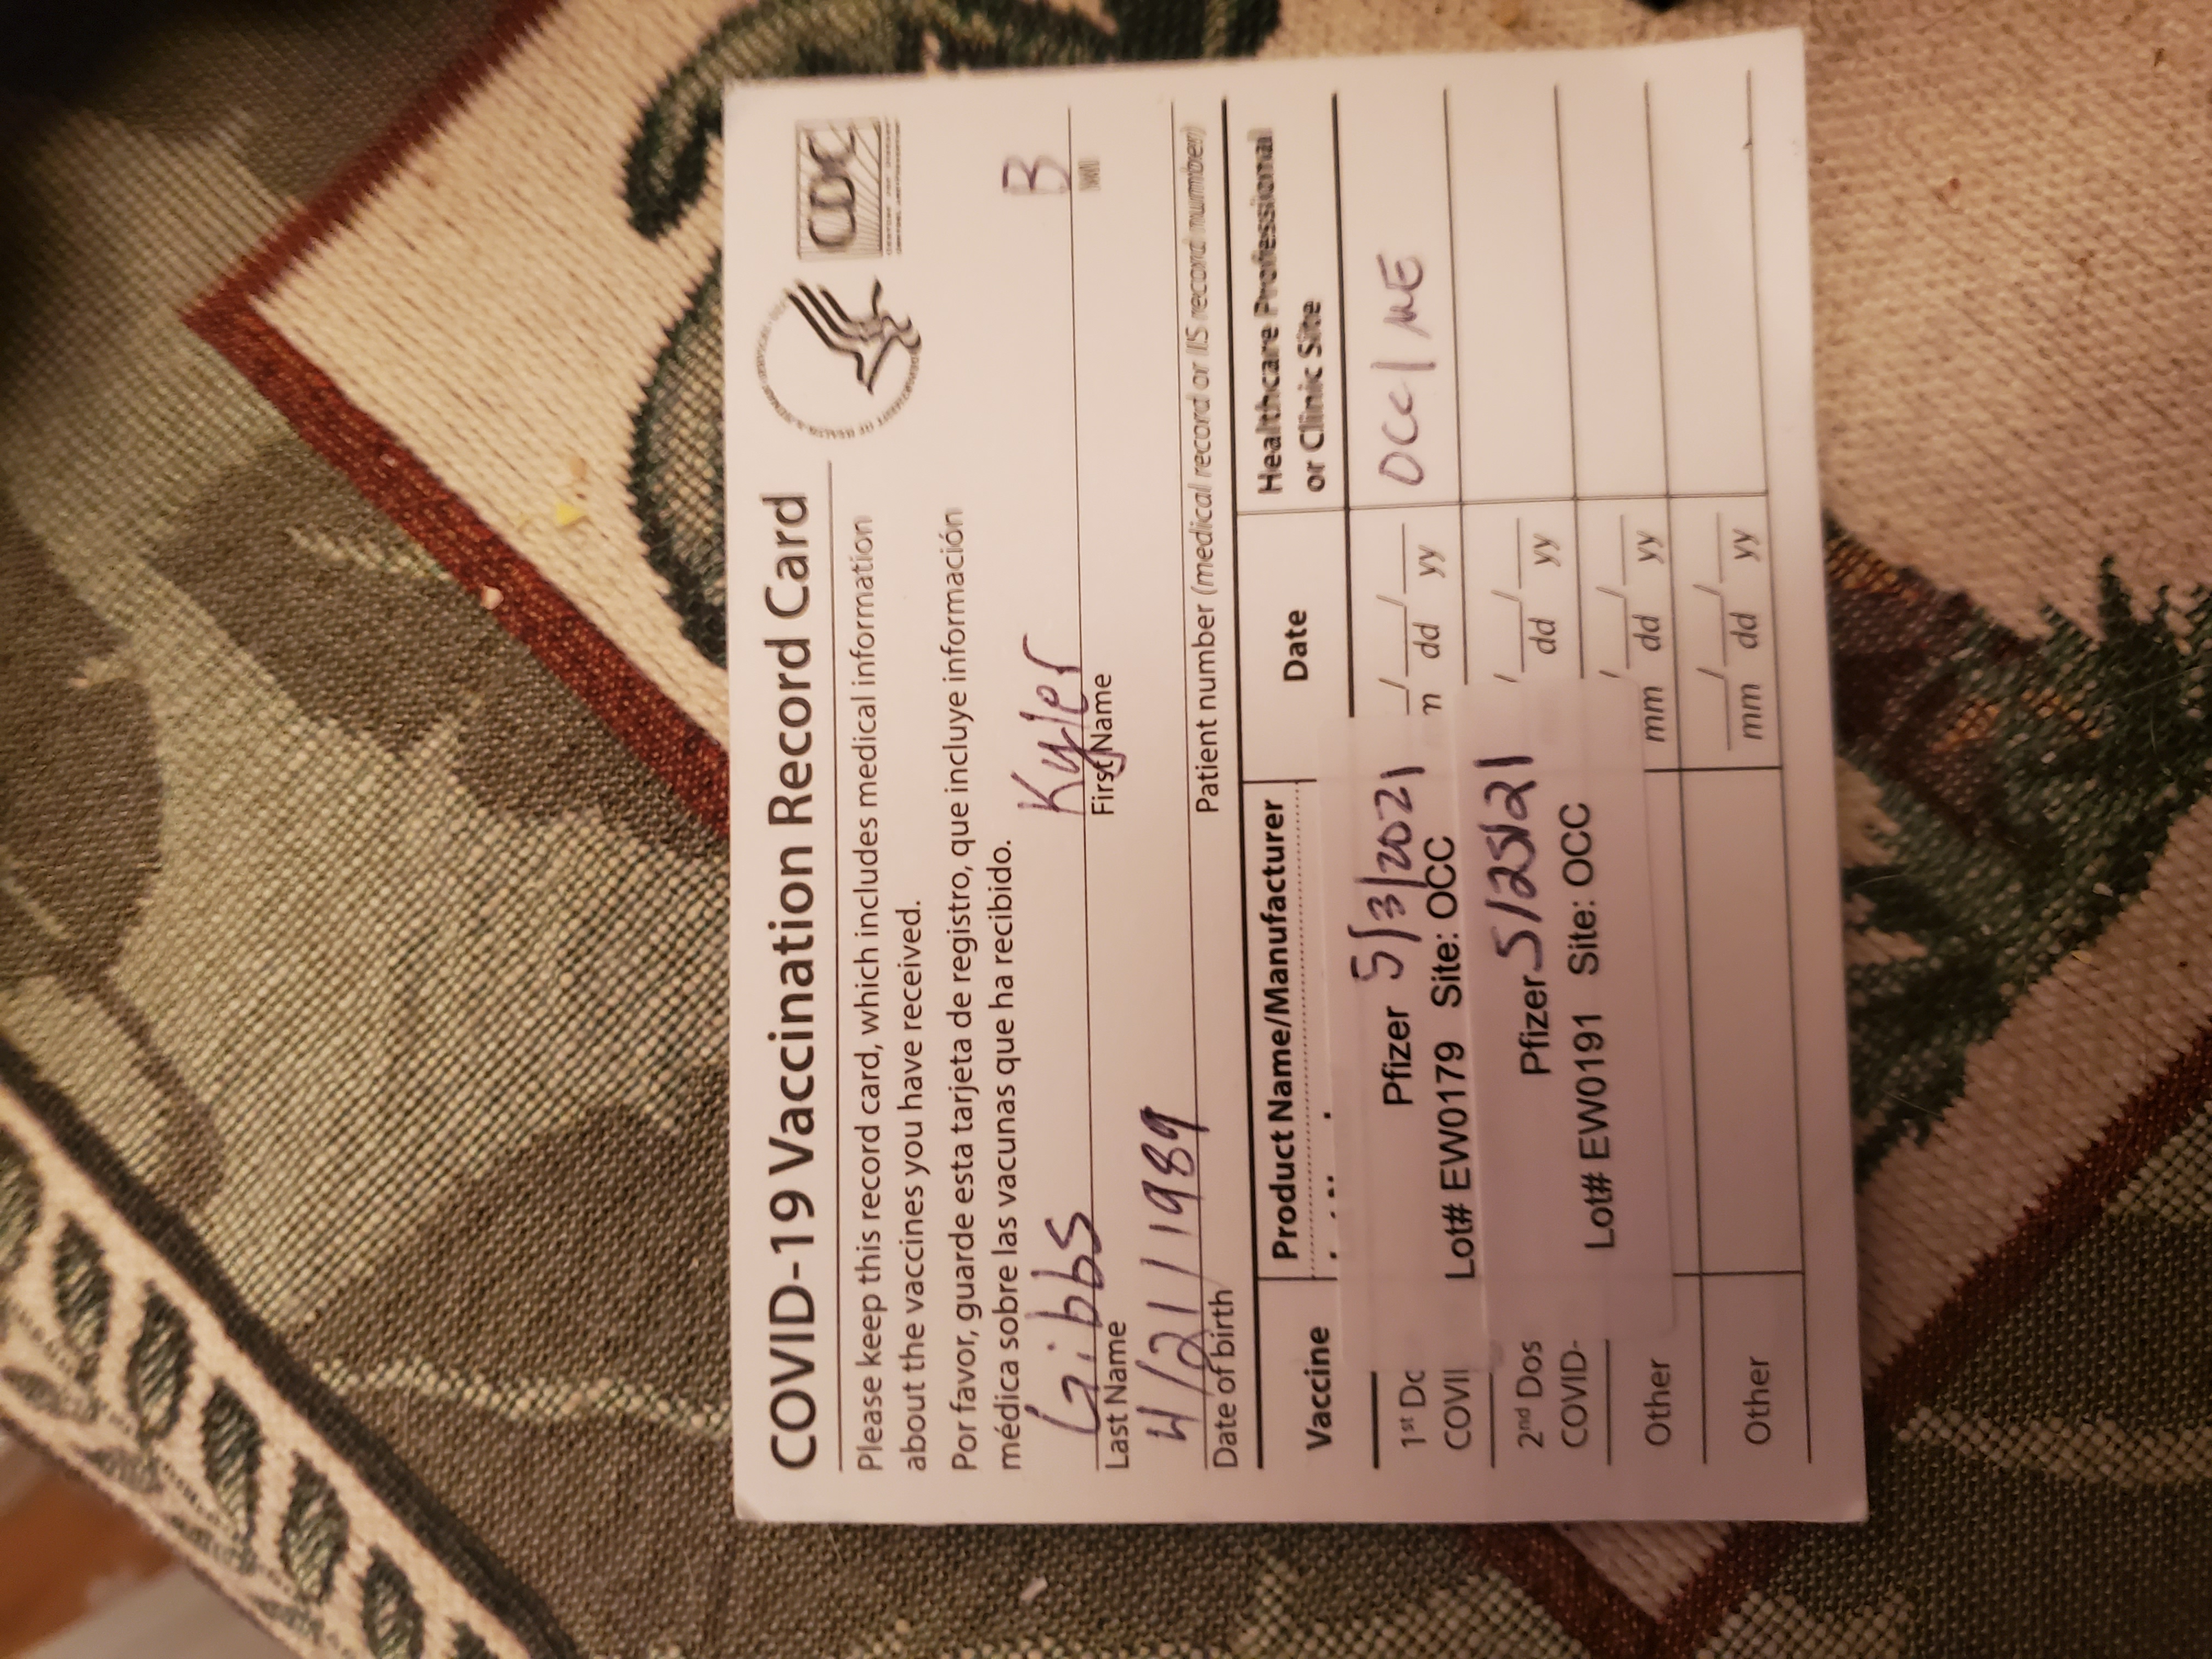 COVID-19 Vaccination Record Card
CDC
Please keep this record card, which includes medical information
about the vaccines you have received.
Por favor, guarde esta tarjeta de registro, que incluye información
médica sobre las vacunas que ha recibido.
Gibbs Kyler B
Last Name First Name MI
4/21/1989
Date of birth Patient number (medical record or IIS record number)
Vaccine Product Name/Manufacturer Date Healthcare Professional
or Clinic Site
1st Do Pfizer 5/3/2021 / / OCC/ME
COVI Lot# EW0179 Site: OCC m dd yy
2nd Dos Pfizer 5/25/21 / /
COVID- Lot# EW0191 Site: OCC dd yy
Other / /
mm dd yy
Other / /
mm dd yy